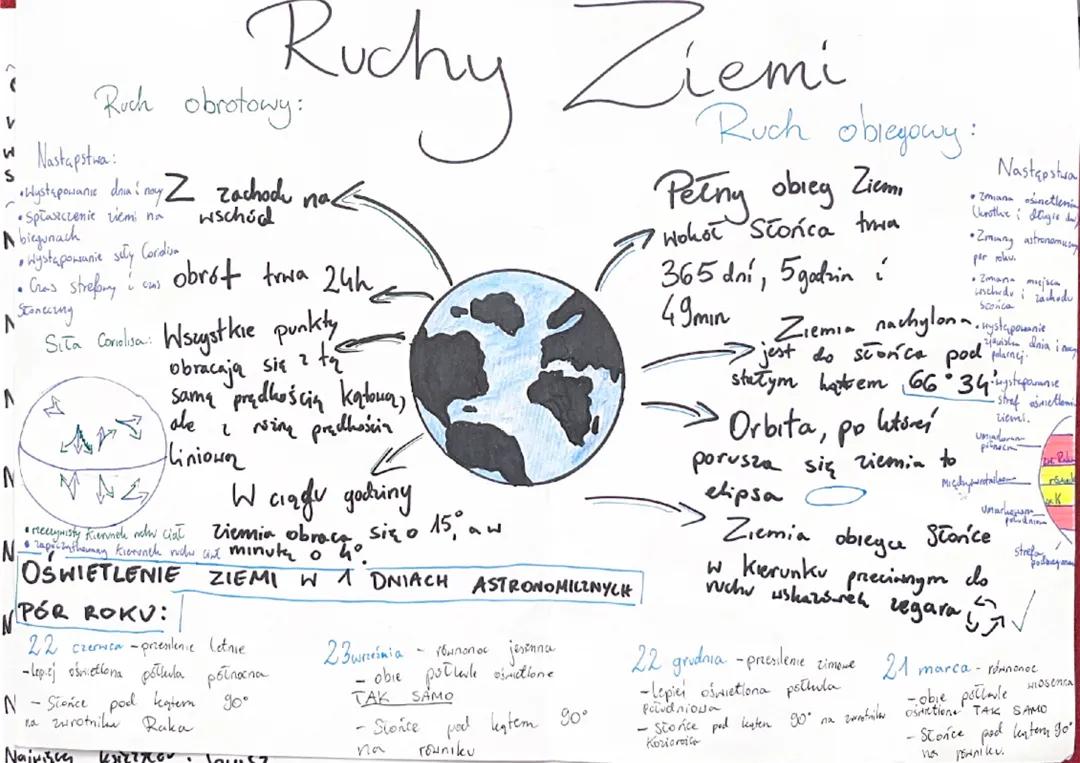 Ruchy Ziemi
Ruch obrotowy:
Następstwa:
• Występowanie dnia i nocy
• Spłaszczenie ziemi na
biegunach
• Występowanie siły Coriolisa
• Czas strefowy i czas
słoneczny
Siła Coriolisa:
• rzeczywisty kierunek ruchu ciał
• zapoczątkowany kierunek ruchu ciał
Z zachodu na
wschód
obrót trwa 24h
Wszystkie punkty
obracają się z tą
samą prędkością kątową,
ale z różną prędkością
liniową
W ciągu godziny
ziemia obraca się o 15°, a w
minutę o 4°.
Ruch obiegowy:
Pełny obieg Ziemi
wokół Słońca trwa
365 dni, 5 godzin i
49 min
Ziemia nachylona
jest do słońca pod
stałym kątem 66°34'
Orbita, po której
porusza się ziemia to
elipsa
Ziemia obiega Słońce
w kierunku przeciwnym do
ruchu wskazówek zegara
Następstwa
• zmiana oświetlenia
(krótkie i długie
• Zmiany astronomiczny
pór roku.
• zmiana miejsca
wschodu i zachodu
słońca
• występowanie
zjawiska dnia i nocy
polarnej.
• występowanie
stref oświetleni
ziemi.
Umiarkowana
północna
Międzyzwrotnikowa
Umiarkowana
południowa
strefa
OŚWIETLENIE ZIEMI W 1 DNIACH ASTRONOMICZNYCH
PÓR ROKU:
22 czerwca - przesilenie letnie
- lepiej oświetlona półkula północna
- Słońce pod kątem 90°
na zwrotniku Raka
23 września - równonoc jesienna
- obie półkule oświetlone
TAK SAMO
- Słońce pod kątem 90°
na równiku
22 grudnia - przesilenie zimowe
- lepiej oświetlona półkula
południowa
- Słońce pod kątem 90° na zwrotniku
Koziorożca
21 marca - równonoc
wiosenna
- obie półkule
oświetlone TAK SAMO
- Słońce pod kątem 90°
na równiku.